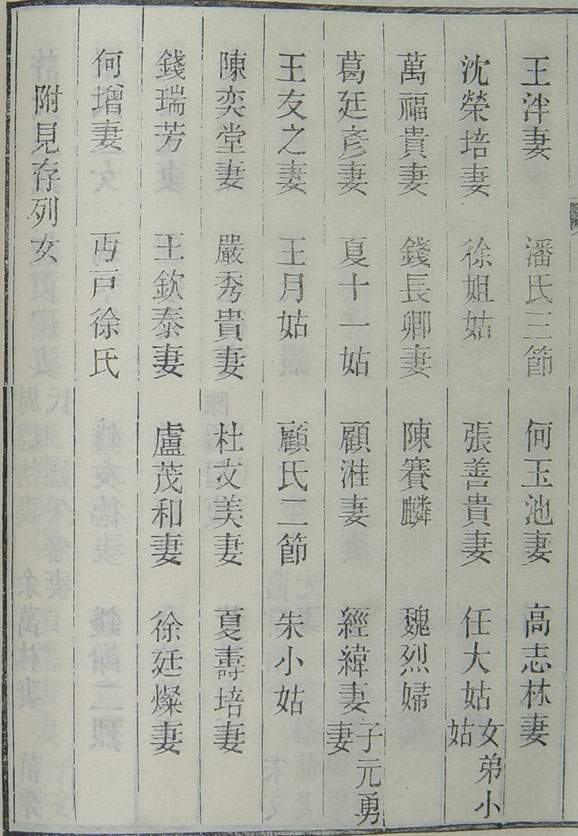 王泮妻 潘氏三節 何玉池妻 高志林妻
沈榮培妻 徐姐姑 張善貴妻 任大姑 女弟小姑
萬福貴妻 錢長卿妻 陳賽麟 魏烈婦
葛廷彥妻 夏十一姑 顧漼妻 經緯妻 子元勇妻
王友之妻 王月姑 顧氏二節 朱小姑
陳奕堂妻 嚴秀貴妻 杜文美妻 夏壽培妻
錢瑞芳 王欽泰妻 盧茂和妻 徐廷燦妻
何增妻 丐戸徐氏
附見存列女